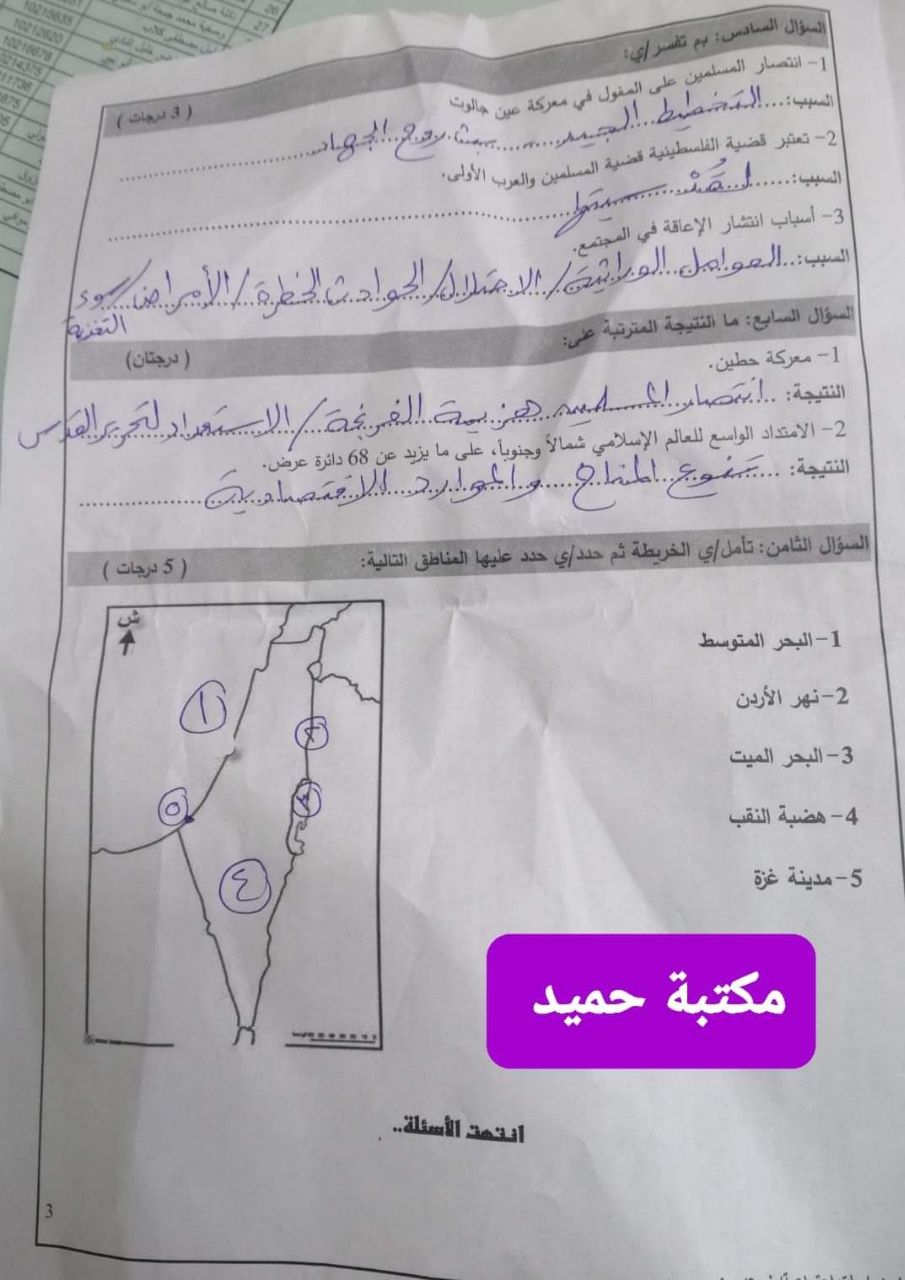 26
27
10216635
10212620
10216678
10214375
السؤال السادس: بم تفسر/ي:
( 3 درجات )
1- انتصار المسلمين على المغول في معركة عين جالوت
السبب:... التخطيط الجيد..... بث روح الجهاد
2- تعتبر قضية الفلسطينية قضية المسلمين والعرب الأولى.
السبب:..... لقدسيتها
3- أسباب انتشار الإعاقة في المجتمع.
السبب:.. العوامل الوراثية / الاحتلال / الحوادث الخطرة / الأمراض / سوء
التغذية
السؤال السابع: ما النتيجة المترتبة على:
( درجتان)
1- معركة حطين.
النتيجة: .. انتصار المسلمين هزيمة الفرنجة / الاستعداد لتحرير القدس
2- الامتداد الواسع للعالم الإسلامي شمالاً وجنوباً، على ما يزيد عن 68 دائرة عرض.
النتيجة: .... تنوع المناخ والموارد الاقتصادية
السؤال الثامن: تأمل/ي الخريطة ثم حدد/ي حدد عليها المناطق التالية:
( 5 درجات )
ش
1-البحر المتوسط
2-نهر الأردن
3-البحر الميت
4-هضبة النقب
5-مدينة غزة
١
٢
٣
٥
٤
مكتبة حميد
انتهت الأسئلة..
3